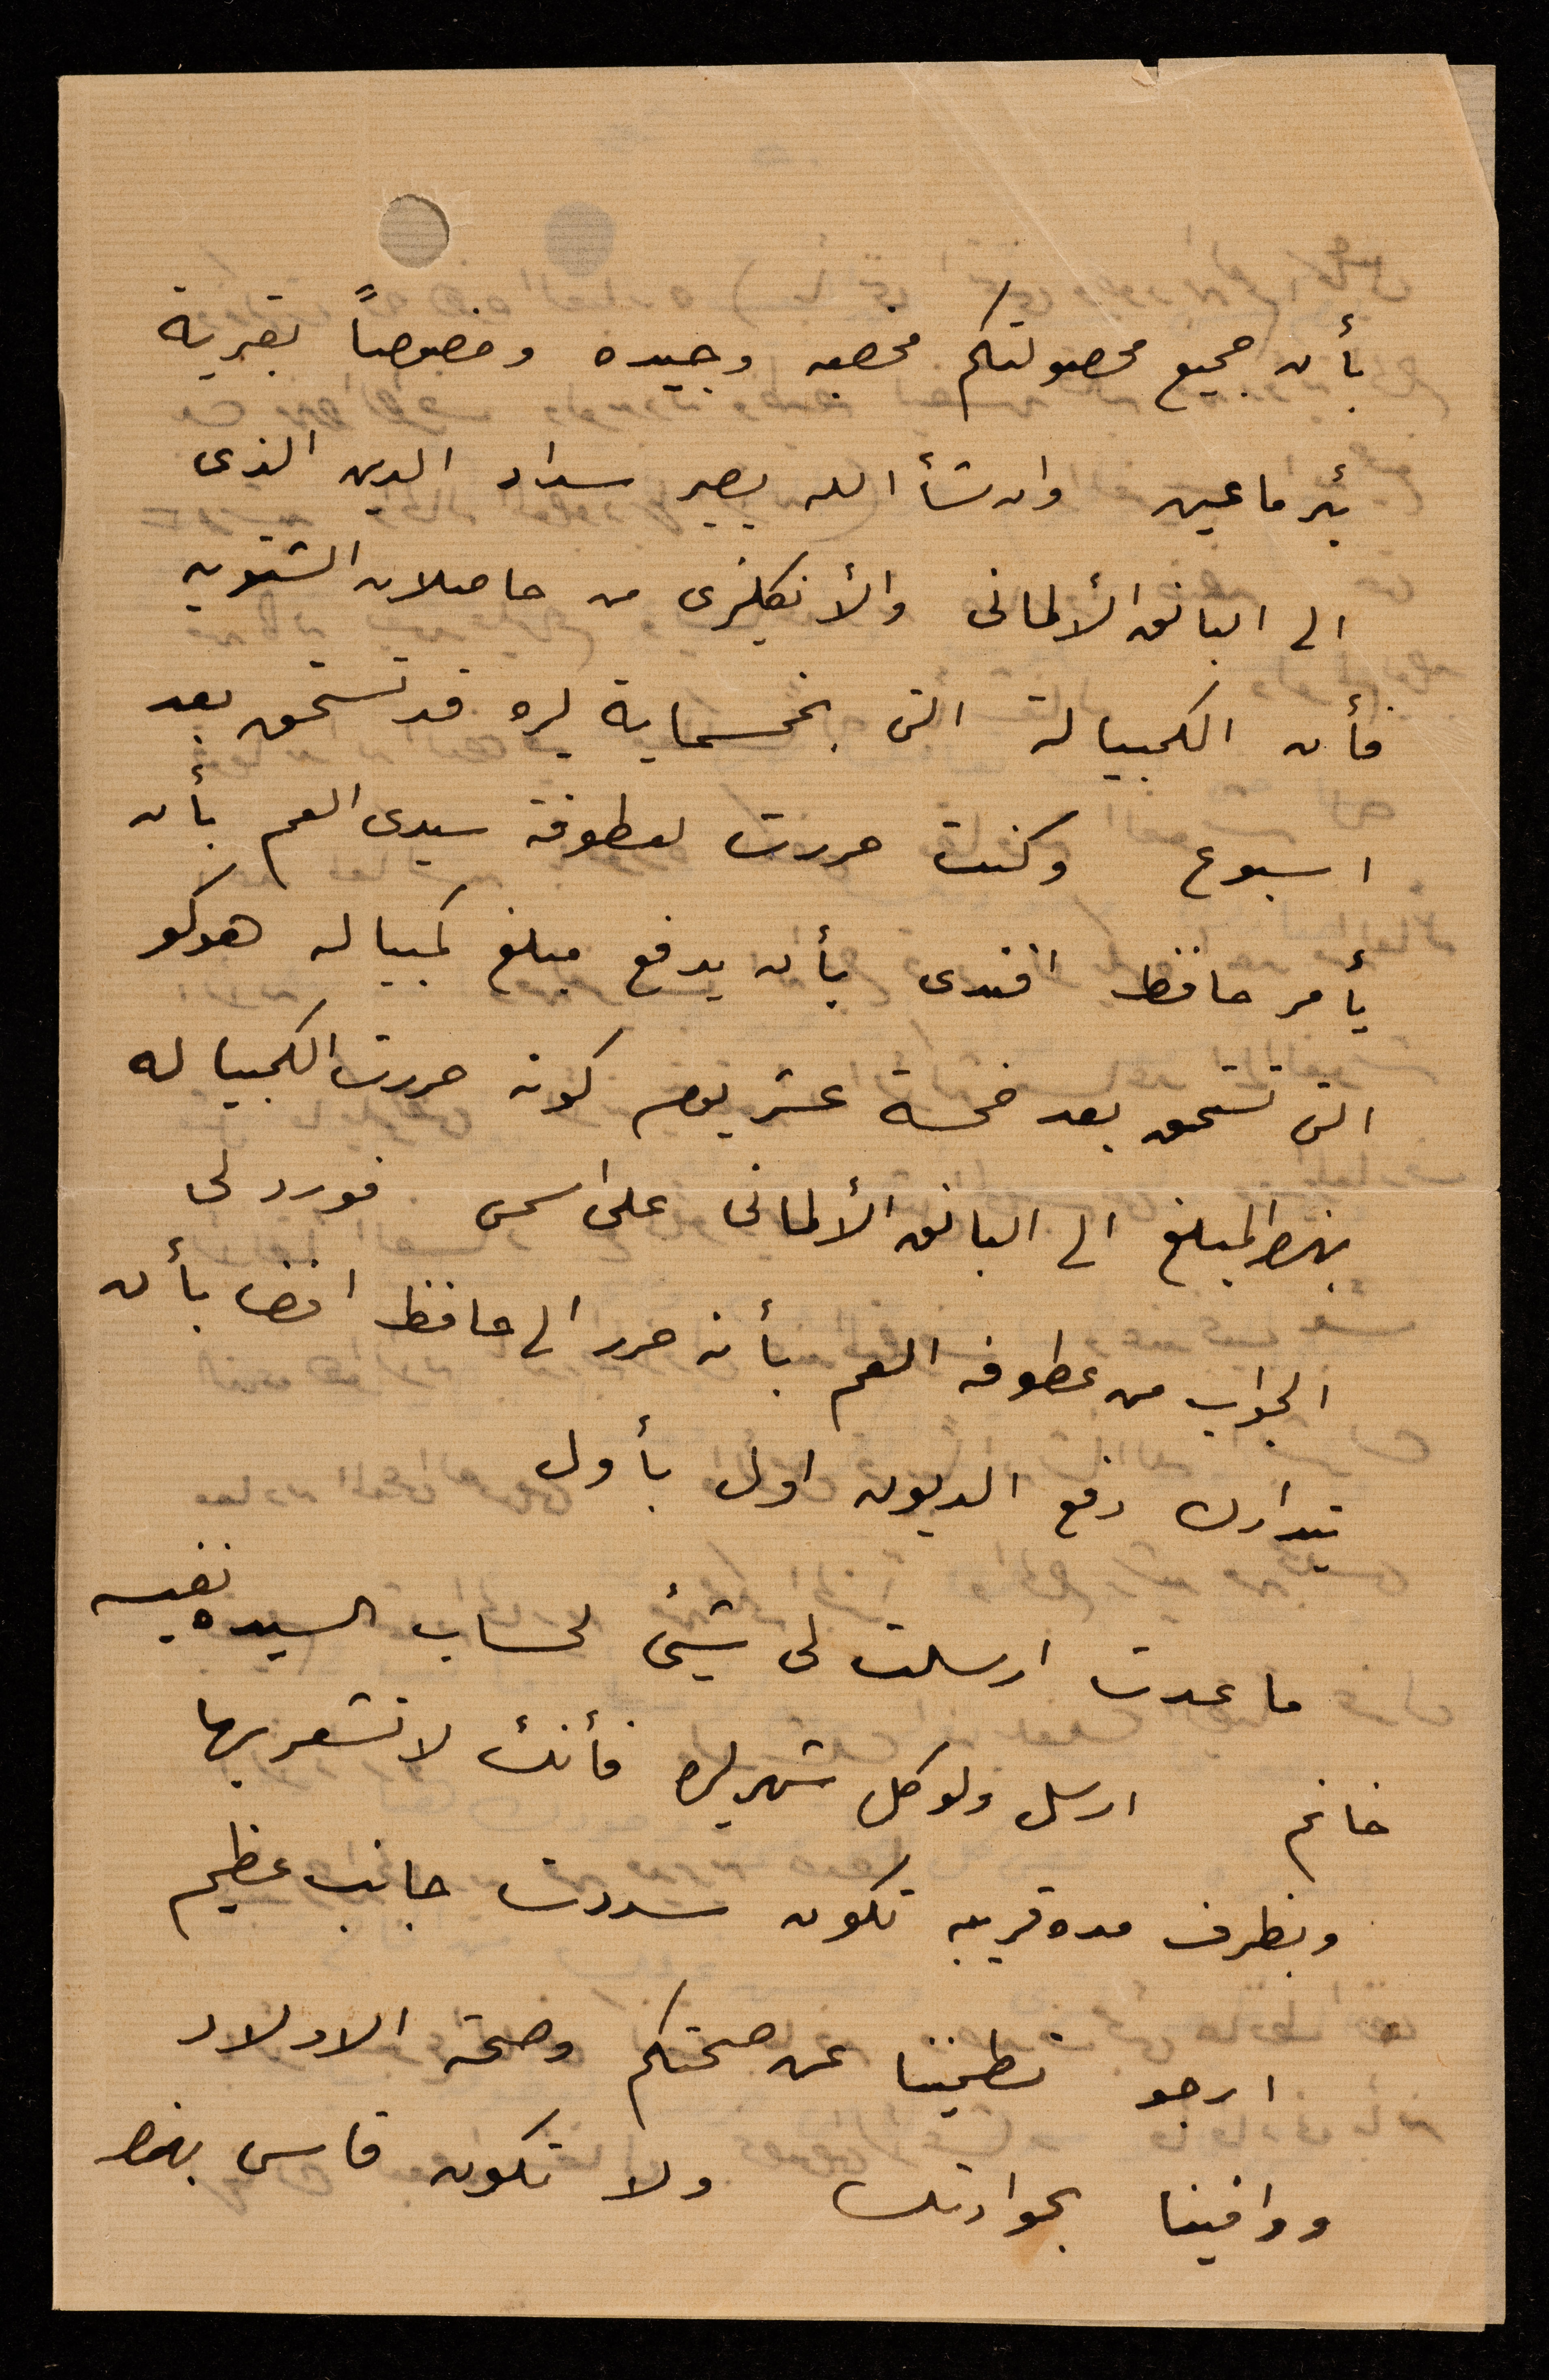 بأن جميع محصولتكم مخصبه وجيده وخصوصاً بقرية
بئر ماعين وان شأ الله يصير سداد الدين الذى
الى البانق الألمانى والأنكليزى من حاصلات الشتويه
فأن الكمبيالة التى بخمسماية ليره قد تستحق بعد
اسبوع وكنت حررت لعطوفة سيدى العم بأن
يأمر حافظ افندى بأن يدفع مبلغ كمبياله هوكو
التى تستحق بعد خمسة عشر يوم كونه حررت الكمبياله
بهذا المبلغ الى البانق الألمانى على اسمى فورد لى
الجواب من عطوفه العم بأنه حرر الى حافظ افندى بأن
يتدارك دفع الديون اول بأول
ما عدت ارسلت لى شيئ لحساب السيده نفيسه
خانم ارسل ولو كل شهر ليره فأنك لا تشعر بها
وبظرف مده قريبه تكون سددت جانب عظيم
ارجو تطمينا عن صحتكم وصحة الاولاد
ووافينا بحوادثك ولا تكون قاسى بهذا